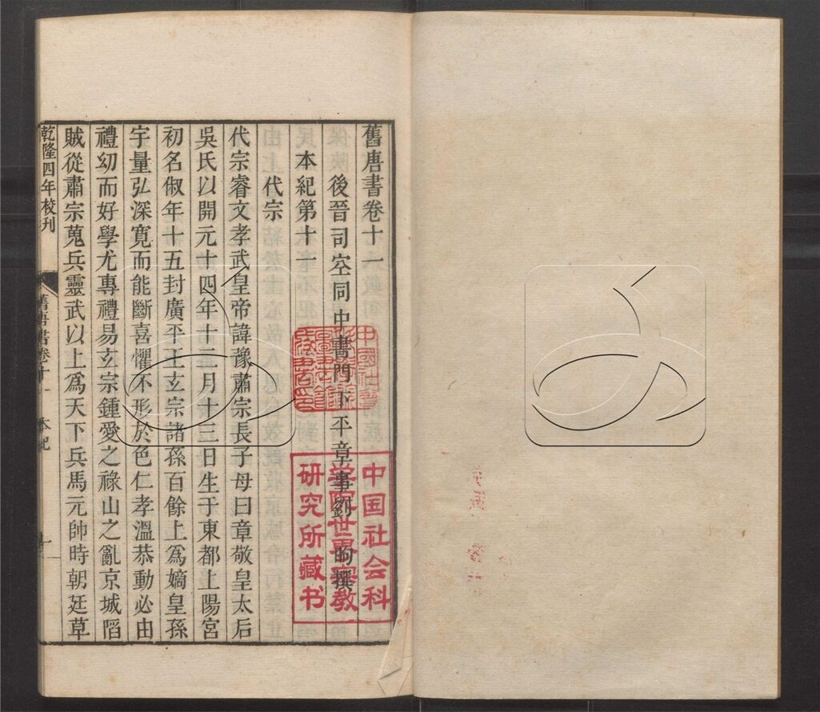 舊唐書卷十一
後晉司空同中書門下平章事劉昫撰
本紀第十一
代宗
代宗睿文孝武皇帝諱豫肅宗長子母曰章敬皇太后
吳氏以開元十四年十二月十三日生于東都上陽宮
初名俶年十五封廣平王玄宗諸孫百餘上爲嫡皇孫
宇量弘深寬而能斷喜懼不形於色仁孝溫恭動必由
禮幼而好學尤專禮易玄宗鍾愛之祿山之亂京城陷
賊從肅宗蒐兵靈武以上爲天下兵馬元帥時朝廷草
乾隆四年校刊
舊唐書卷十一 本紀
中国社会科
学院世界宗教
研究所藏书